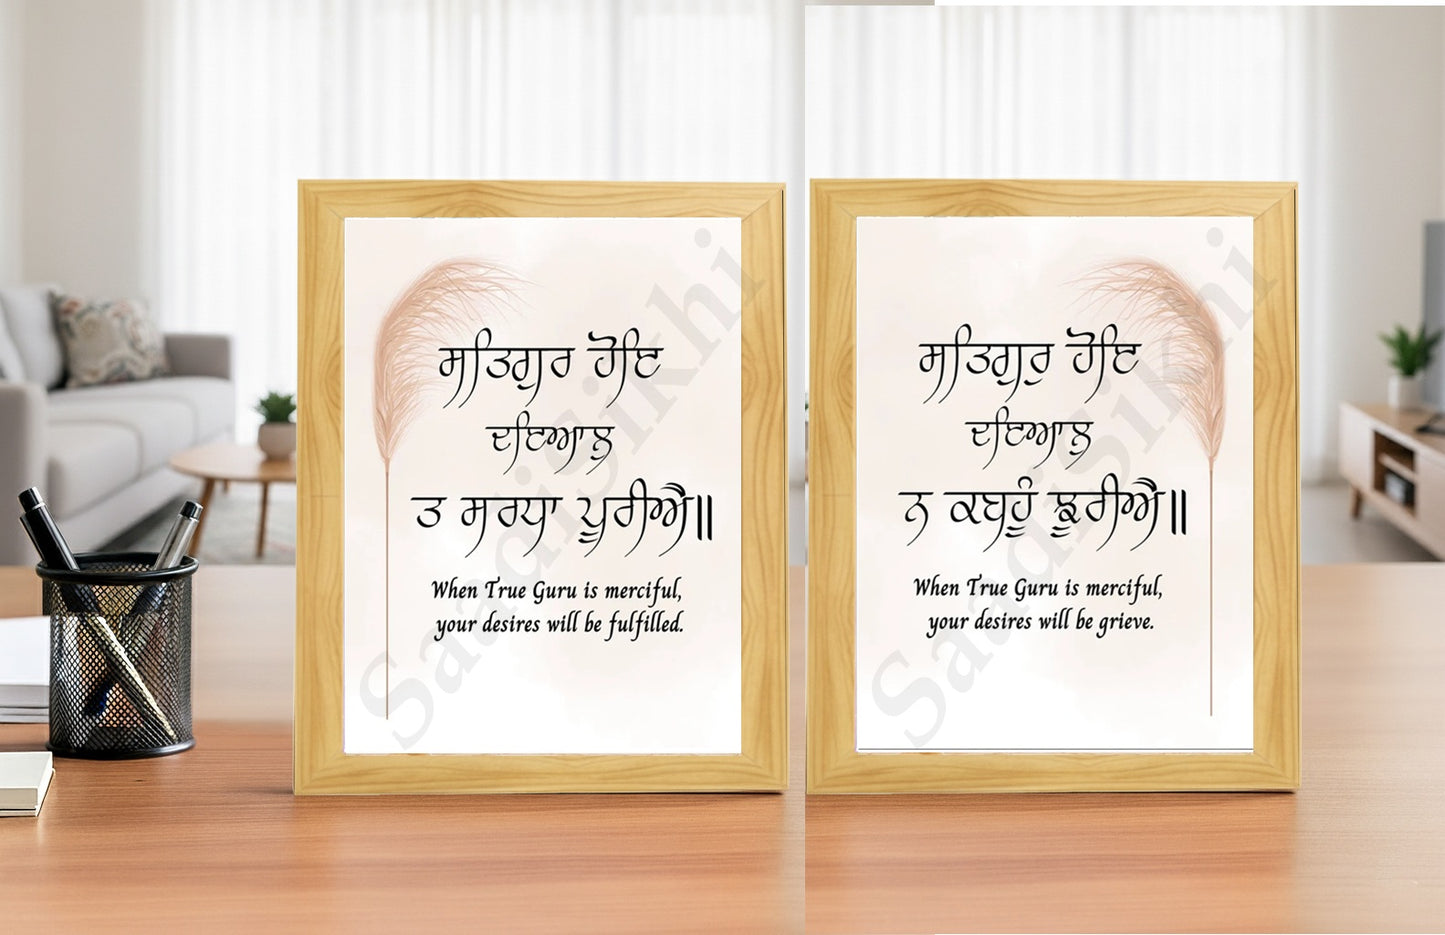 ਸਤਿਗੁਰ ਹੋਇ
ਦਇਆਲੁ
ਤ ਸਰਧਾ ਪੂਰੀਐ॥
When True Guru is merciful,
your desires will be fulfilled.
SaadiSikhi
ਸਤਿਗੁਰੁ ਹੋਇ
ਦਇਆਲੁ
ਨ ਕਬਹੂੰ ਝੂਰੀਐ॥
When True Guru is merciful,
your desires will be grieve.
SaadiSikhi